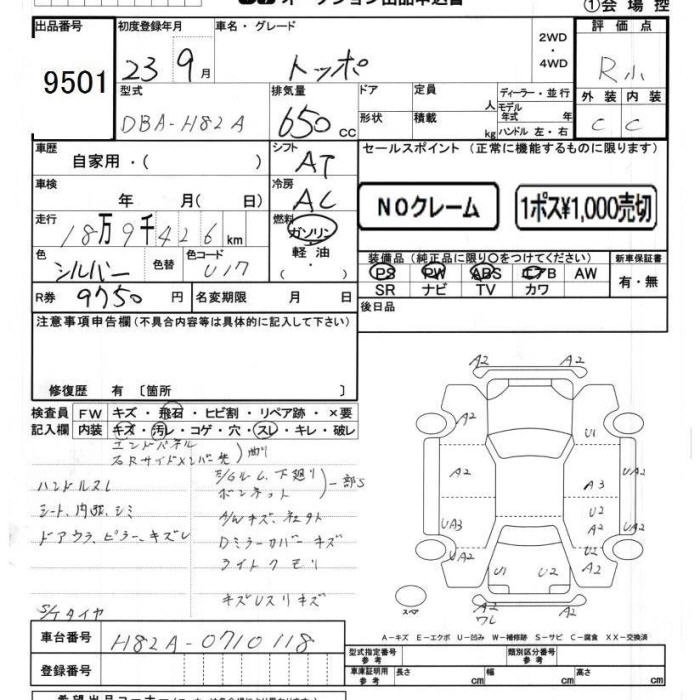 オークション出品申込書
①会場控
出品番号 初度登録年月 車名・グレード 評価点
9501 23 9月 トッポ 2WD・4WD R小
型式 排気量 ドア 定員 人 ディーラー・並行 外装 内装
DBA-H82A 650cc 形状 積載 kg モデル年式 年 ハンドル 左・右 C C
車歴 自家用・( ) シフト AT セールスポイント(正常に機能するものに限ります)
車検 年 月( 日) 冷房 AC NOクレーム 1ポス¥1,000売切
走行 18万9千426km 燃料 ガソリン
軽油
・
色 シルバー 色替 色コード U17 装備品(純正品に限り○をつけてください) 新車保証書
PS PW ABS エアB AW 有・無
SR ナビ TV カワ
R券 9750円 名変期限 月 日 後日品
注意事項申告欄(不具合内容等は具体的に記入して下さい)
修復歴 有 〔箇所 〕
検査員 FW キズ・飛石・ヒビ割・リペア跡・×要
記入欄 内装 キズ・汚レ・コゲ・穴・スレ・キレ・破レ
エンドパネル
右Rサイドメンバー先 )曲り
ハンドルスレ
E/Gルーム、下廻り
ボンネット )一部S
シート、内張、シミ
A/Wキズ、
ドアウラ、ピラー、キズレ
Dミラーカバーキズ
ライトクモリ
キズUスリキズ
S/Tタイヤ
A2
A2 A2
A2 U1
A2 A3 UA2
UA3 U2 UA2
A2 U2
A2 U1 U2 A2
スペア A2
ワレ
A-キズ E-エクボ U-凹み W-補修跡 S-サビ C-腐食 XX-交換済
車台番号 H82A-0710118
型式指定番号 参考 類別区分番号 参考
登録番号 車庫証明用 参考 長さ cm 幅 cm 高さ cm
希望出品コーナー